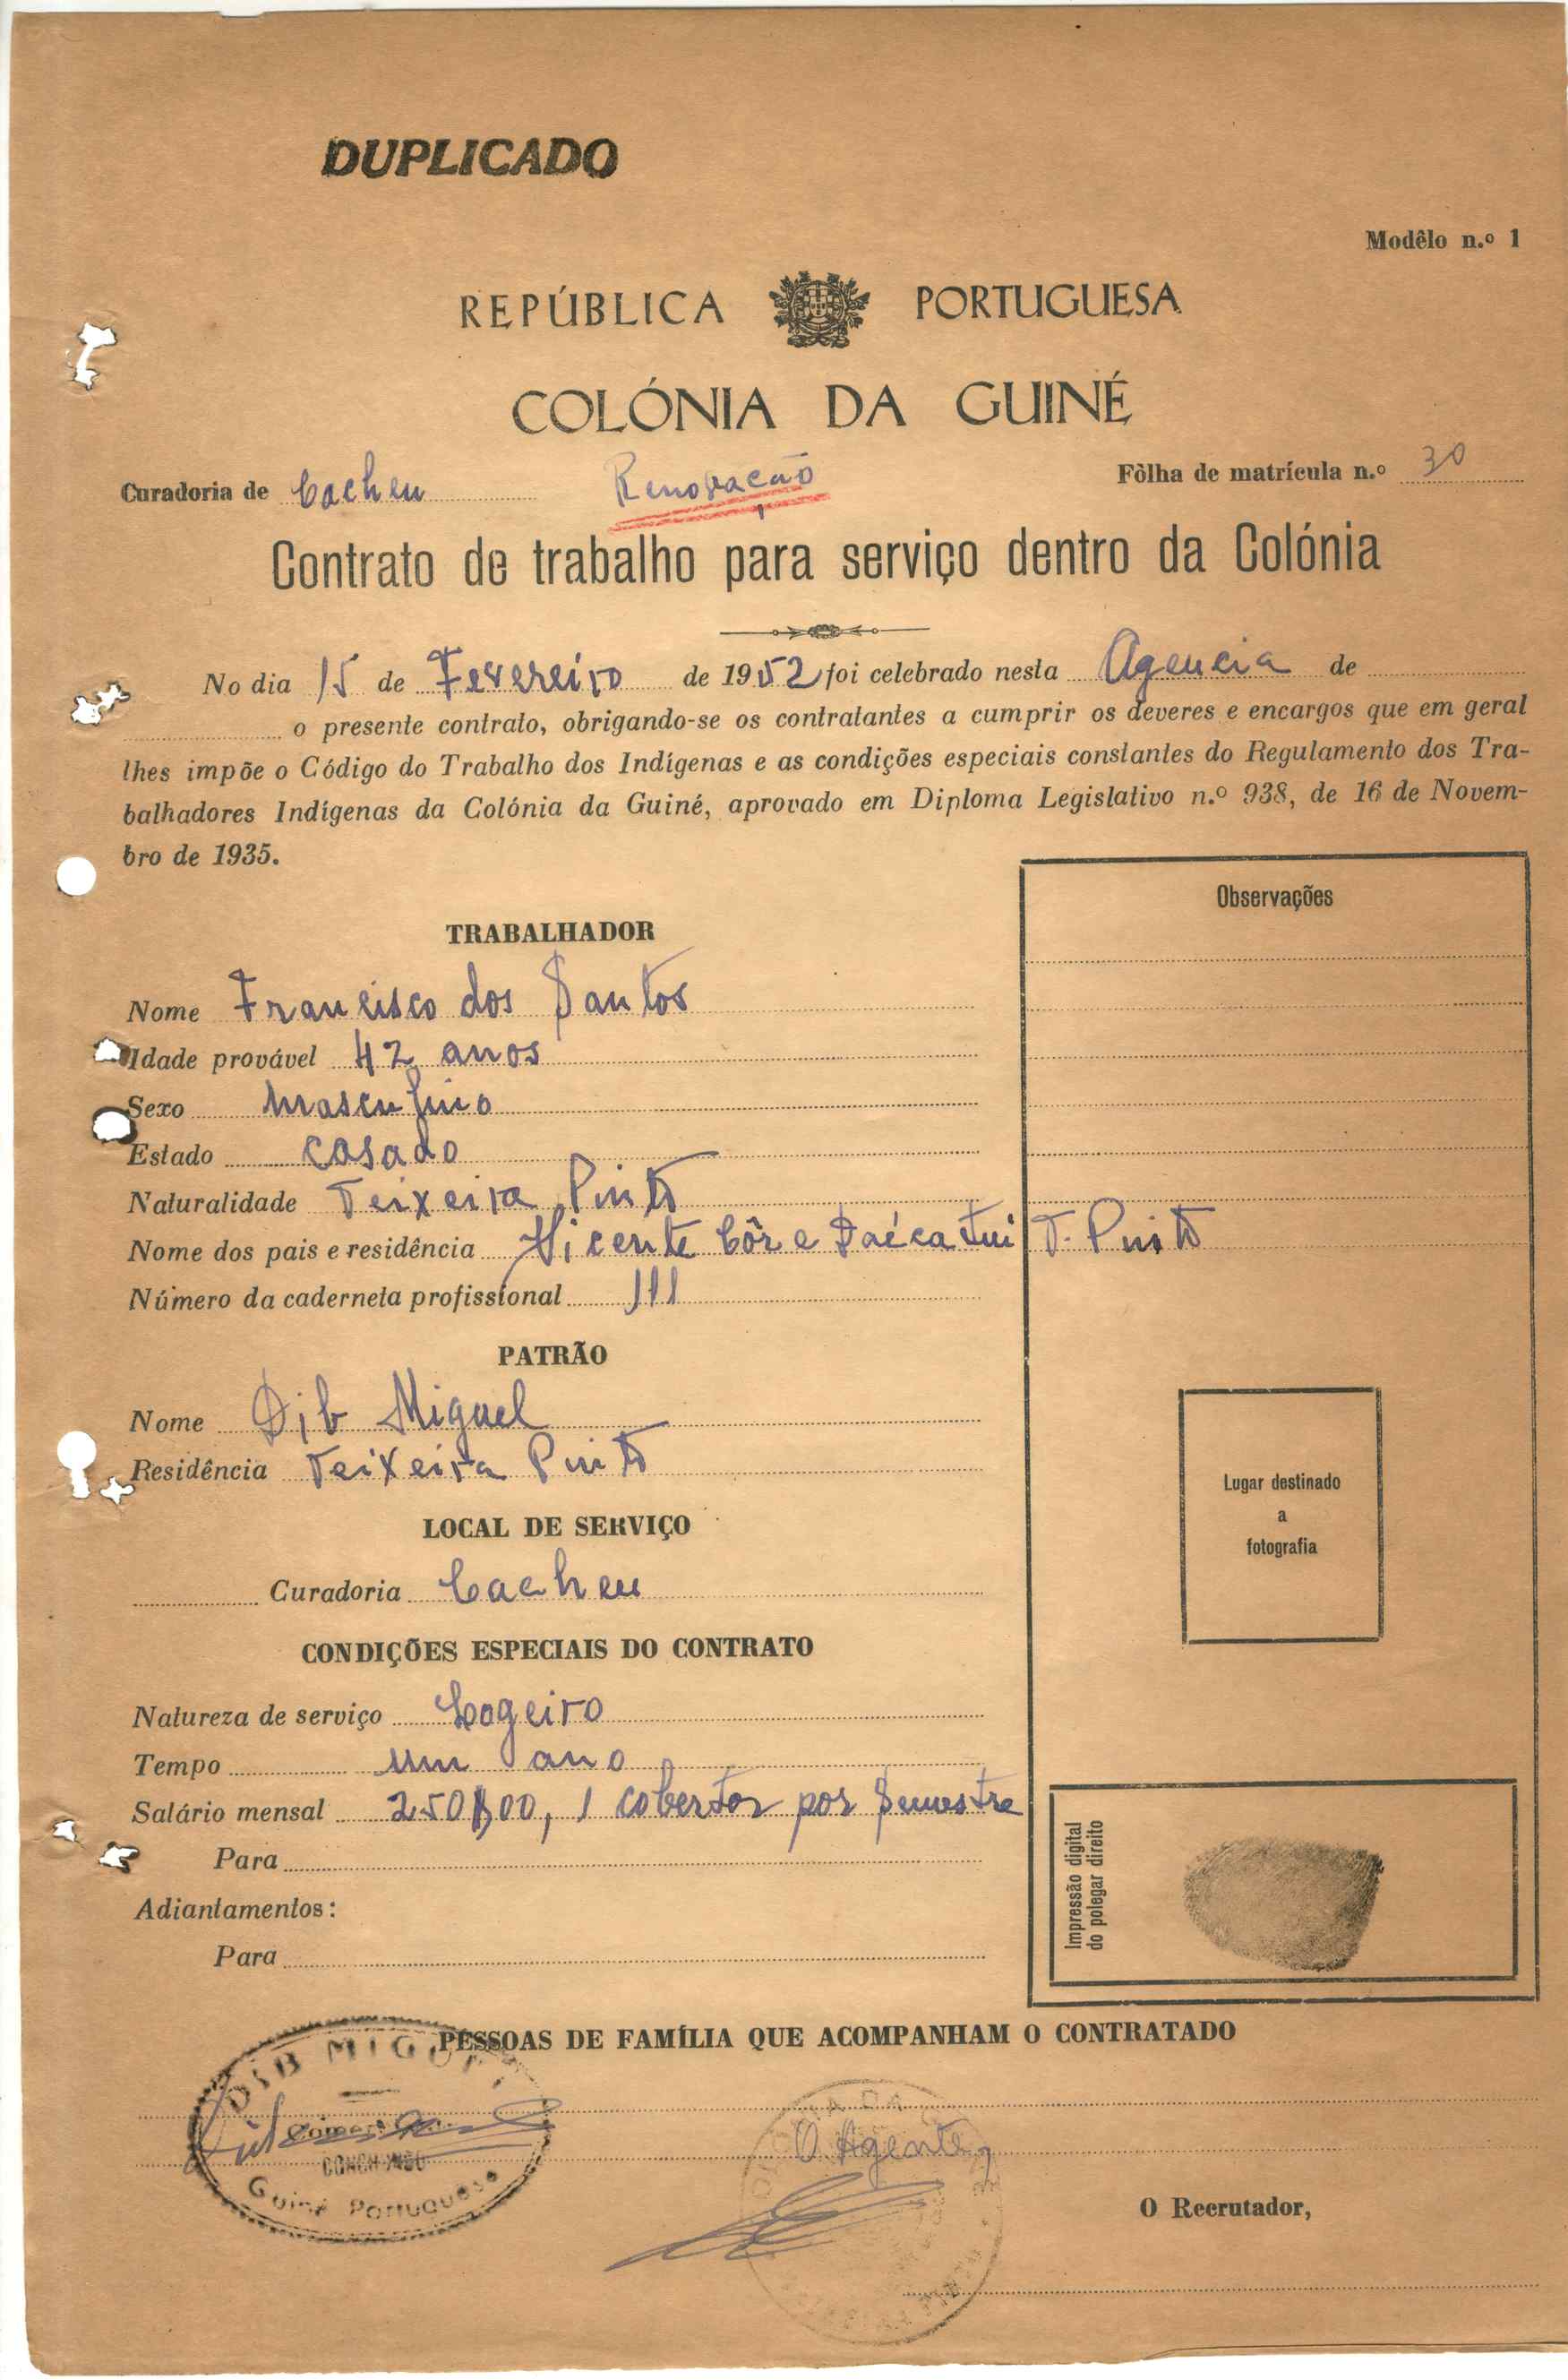 DUPLICADO
Modêlo n.º 1
REPÚBLICA PORTUGUESA
COLÓNIA DA GUINÉ
Curadoria de Cacheu Renovação Fôlha de matrícula n.º 30
Contrato de trabalho para serviço dentro da Colónia
No dia 15 de Fevereiro de 1952 foi celebrado nesta Agencia de
o presente contrato, obrigando-se os contratantes a cumprir os deveres e encargos que em geral
lhes impõe o Código do Trabalho dos Indígenas e as condições especiais constantes do Regulamento dos Tra-
balhadores Indígenas da Colónia da Guiné, aprovado em Diploma Legislativo n.º 938, de 16 de Novem-
bro de 1935.
Observações
TRABALHADOR
Nome Francisco dos Santos
Idade provável 42 anos
Sexo Masculino
Estado casado
Naturalidade Teixeira Pinto
Nome dos pais e residência Vicente Côr e T. Pinto
Número da caderneta profissional 111
PATRÃO
Nome Dib Miguel
Residência Teixeira Pinto
Lugar destinado
a
fotografia
LOCAL DE SERVIÇO
Curadoria Cacheu
CONDIÇÕES ESPECIAIS DO CONTRATO
Natureza de serviço Logeiro
Tempo um ano
Salário mensal 250$00, 1 cobertor por Semestre
Para
Adiantamentos:
Para
Impressão digital
do polegar direito
PESSOAS DE FAMÍLIA QUE ACOMPANHAM O CONTRATADO
DIB MIGUEL
Guiné Portuguesa
O Agente,
O Recrutador,